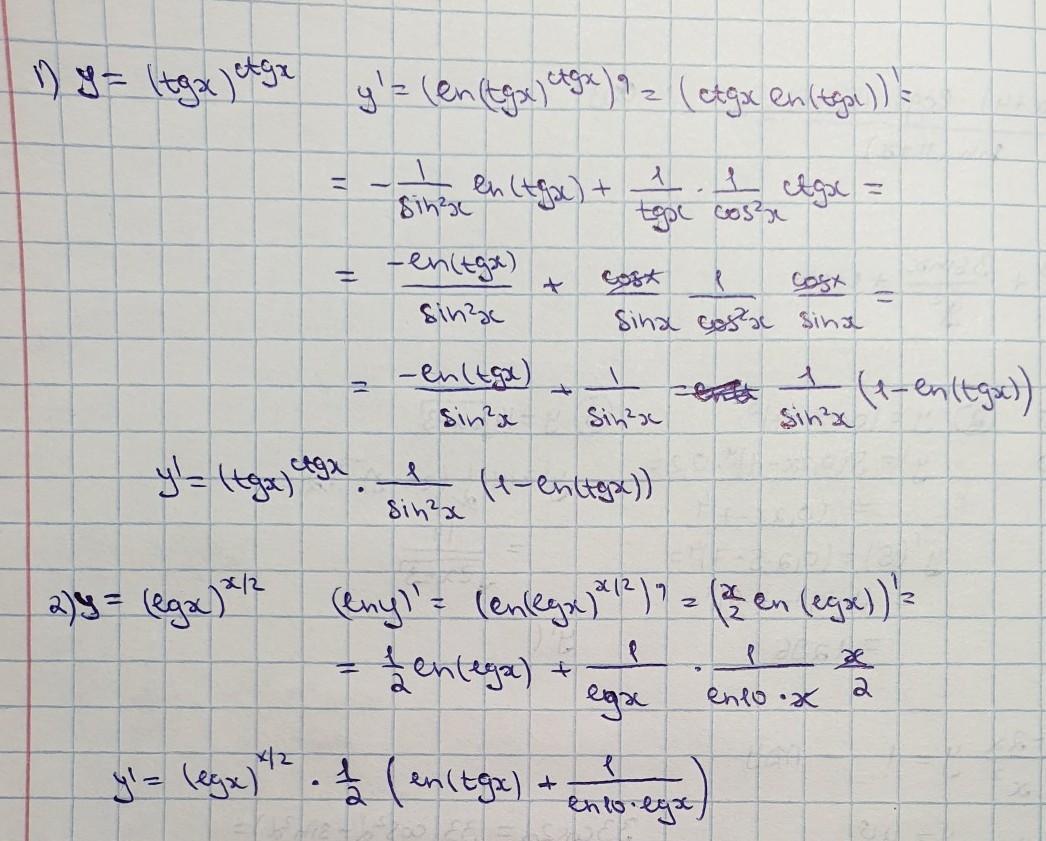 1) y = (tgx)^ctgx y' = (ln(tgx)^ctgx)' = (ctgx ln(tgx))' =
= - 1/sin²x ln(tgx) + 1/tgx · 1/cos²x ctgx =
= -ln(tgx)/sin²x + cosx/sinx 1/cos²x cosx/sinx =
= -ln(tgx)/sin²x + 1/sin²x = 1/sin²x (1-ln(tgx))
y' = (tgx)^ctgx · 1/sin²x (1-ln(tgx))
2) y = (lgx)^x/2 (lny)' = (ln(lgx)^x/2)' = (x/2 ln(lgx))' =
= 1/2 ln(lgx) + 1/lgx · 1/ln10·x x/2
y' = (lgx)^x/2 · 1/2 (ln(tgx) + 1/ln10·lgx)